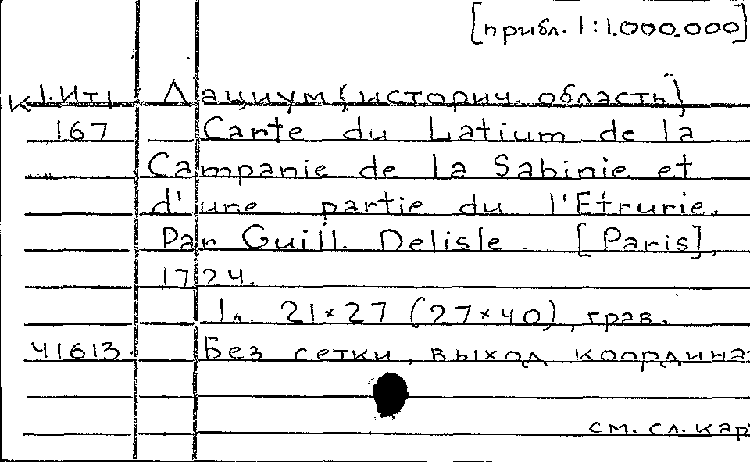 [прибл. 1:1.000.000]
К 1.Ит1 Лациум (историч. область)
167 Carte du Latium de la
Campanie de la Sabinie et
d'une partie du l'Etrurie.
Par Guill. Delisle. [Paris],
1724.
1л. 21×27 (27×40), грав.
41613. Без сетки, выход. координа
см. сл. кар